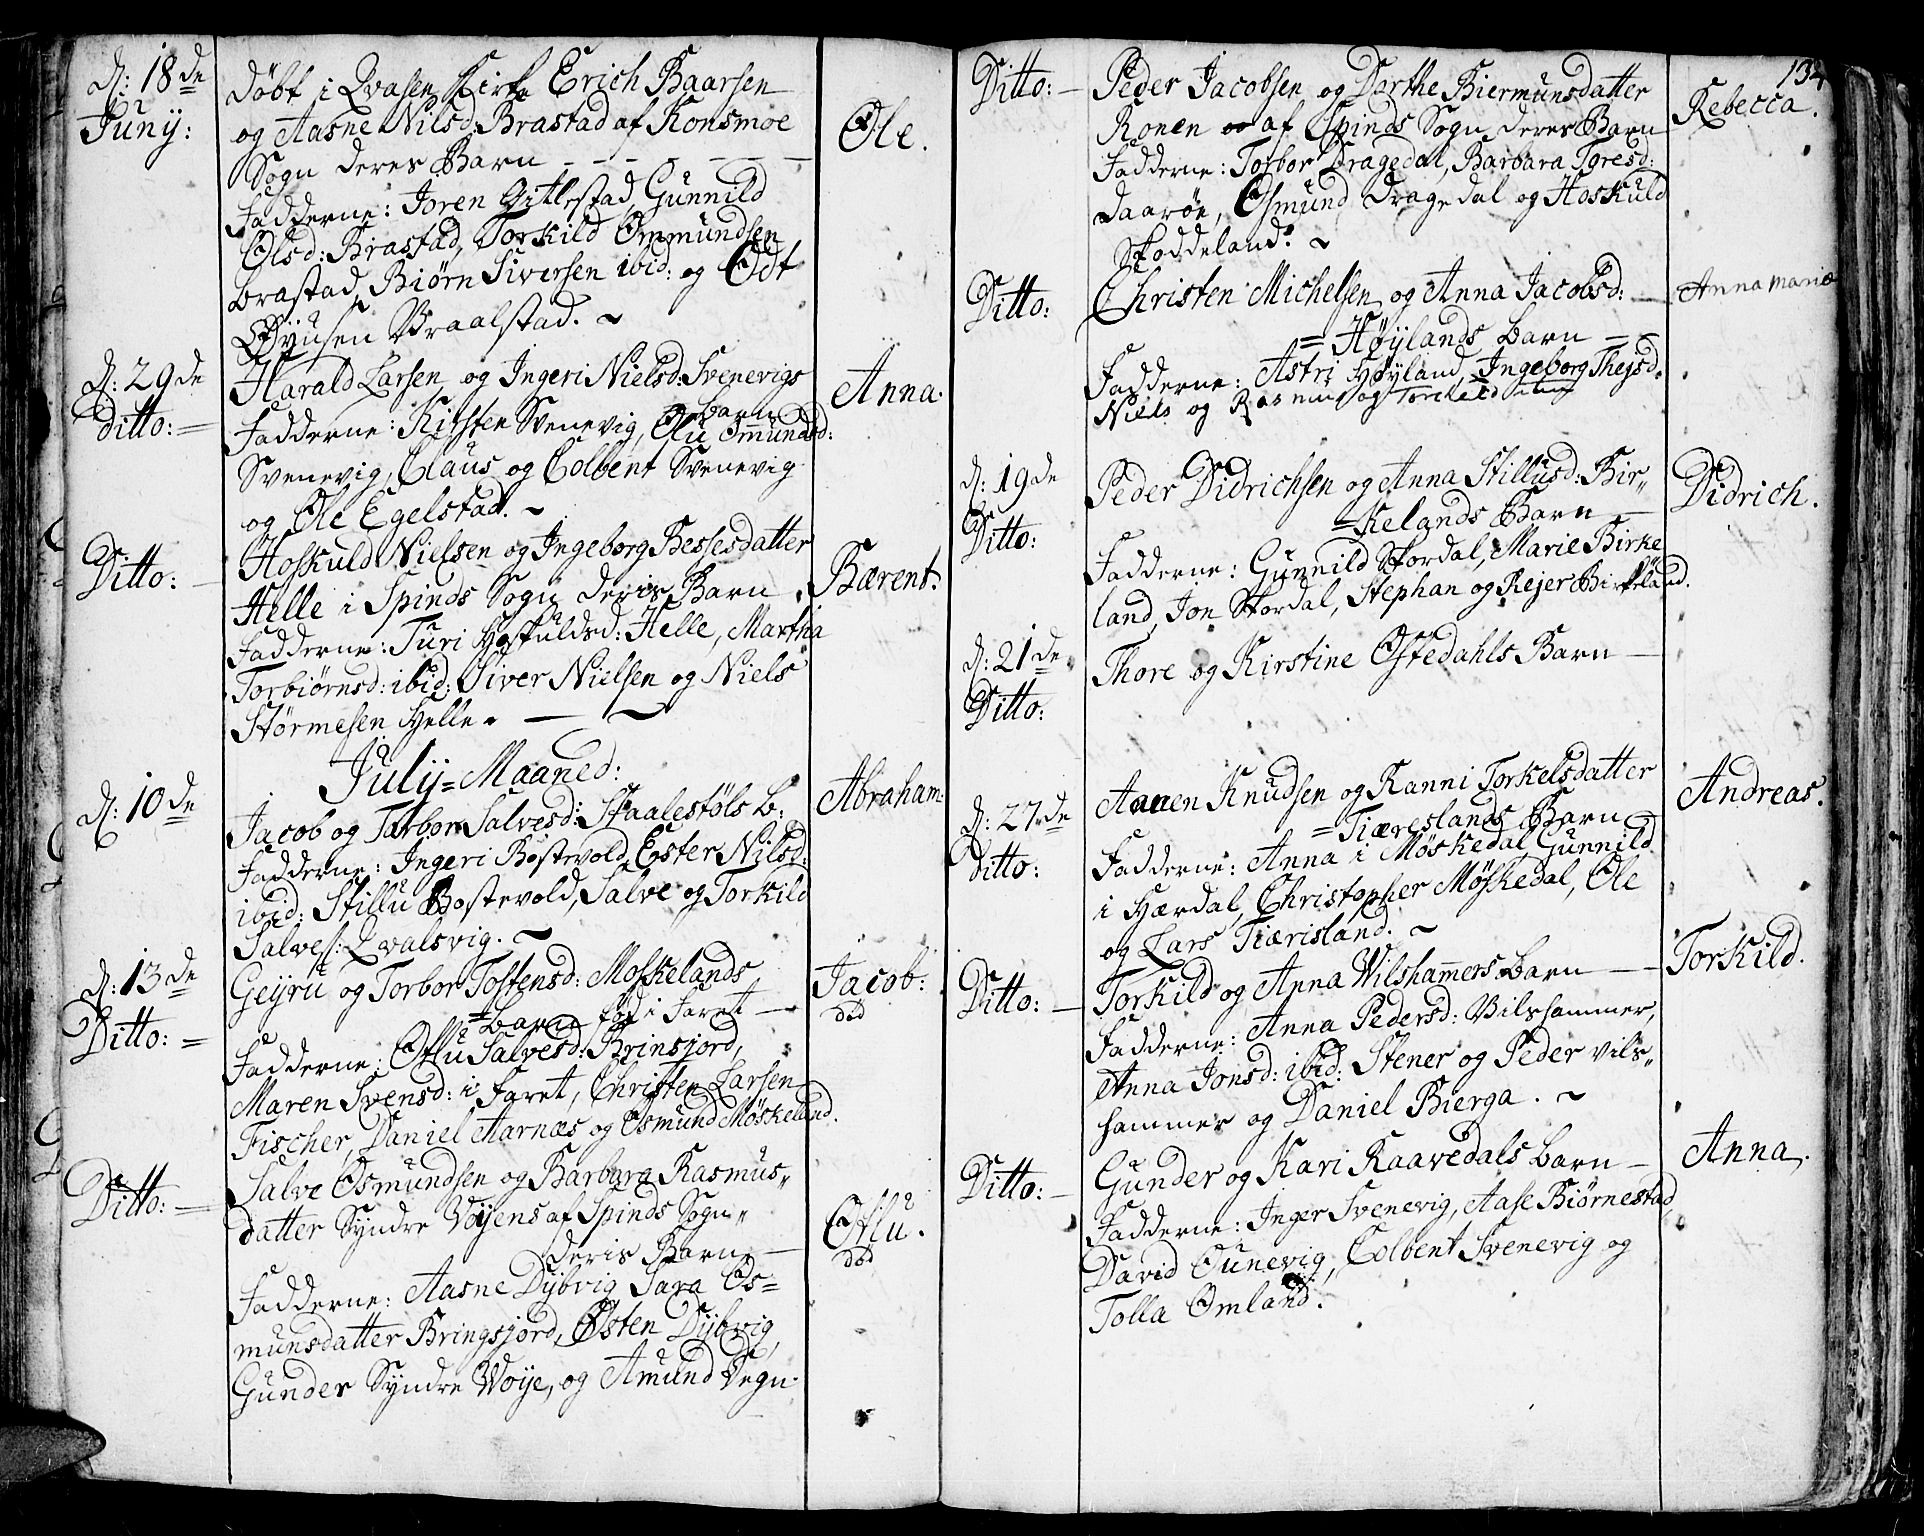 D: 18de
Junij:
döbt i Qvasen Kirke Erich Baarsen
og Aasne Nilsd: Brastad af Konsmoe
Sogn deres Barn - - - - - - -
Ole.
Fadderne: Joren Gitlestad, Gunnild
Olsd: Brastad, Torkild Ommundsen
brastad, Biörn Siversen ibid: og Odt
Braalstad. ~
D: 29de
ditto: =
Harald Larsen og Ingeri Nielsd: Svenevigs
barn
Anna.
Fadderne: Kirsten Svenevig, Olu Omundsd:
Svenevig, Claus og Colbent Svenevig
og Ole Egelstad. ~
Ditto: -
Hoskuld Nielsen og Ingeborg Bessesdatter
Helle i Spinds Sogn deris Barn.
Bærent.
Fadderne: Turi Hoskuldsd: Helle, Martha
Torbiörnsd: ibid: Siver Nielsen og Niels
Störmesen Helle. — ~
Julij=Maaned:
D: 10de
Jacob og Tarbor Salvesd: Staalestöls b:
Abraham.
Fadderne: Ingeri Bostevold, Ester Nilsd:
ibid: Stillu Bostevold, Salve og Torkild
Salves: Qvalsvig. ~
D: 13de
Ditto: =
Geyru og Torbor Tostensd: Moskelands
=barn föd i Faret —
Jacob:
död
Fadderne: Ollu Salvesd: Brinsjord,
Maren Svensd: i Faret, Christen Larsen
Fischer, Daniel Aarnæs og Osmund Möskeland.
Ditto: —
Salve Osmundsen og Barbara Rasmus„
datter Syndre Vöyens af Spinds Sogn„
deris Barn —
Ollu.
död
Fadderne: Aasne Dybvig, Sara Os=
munsdatter Bringsjord, Östen Dybvig,
Gunder Syndre Wöye, og Amund Degn.
134
Ditto: —
Peder Jacobsen og Dorthe Biermunsdatter
Ronen af Spinds Sogn deres Barn
Rebecca.
Fadderne: Torbor Dragedal, Barbara Toresd:
Daaröe, Osmund Dragedal og Hoskuld
Skoddeland. ~
Ditto:
Christen Michelsen og Anna Jacobsd: —
=Höylands barn — —
Anna Maria
Fadderne: Astri Höyland, Ingeborg Thejsd.
Niels og Rasmus og Torckild
D: 19de
Ditto:
Peder Didrichsen og Anna Stillusd: Bir„
=kelands Barn —
Didrich.
Fadderne: Gunnild Stordal, Marie Birke
land, Jon Stordal, Stephan og Rejer Birkeland.
D: 21de
Ditto:
Thore og Kirstine Ostedahls Barn —
D: 27de
Ditto:
Aanen Knudsen og Ranni Torkelsdatter
=Tiæreslands Barn
Andreas.
Fadderne: Anna i Möskedal, Gunnild
i Hærdal, Christopher Möskedal, Ole
og Lars Tiærisland. ~
Ditto: —
Torkild og Anna Vilshamers barn — —
Torkild.
Fadderne: Anna Pedersd: Vilshammer,
Anna Jonsd: ibid: Stener og Peder vils„
hammer og Daniel Bierga. ~
Ditto: —
Gunder og Kari Raavedals barn —
Anna.
Fadderne: Inger Svenevig, Aase Biörnestad,
David Tunevig, Colbent Svenevig og
Tolla Omland.